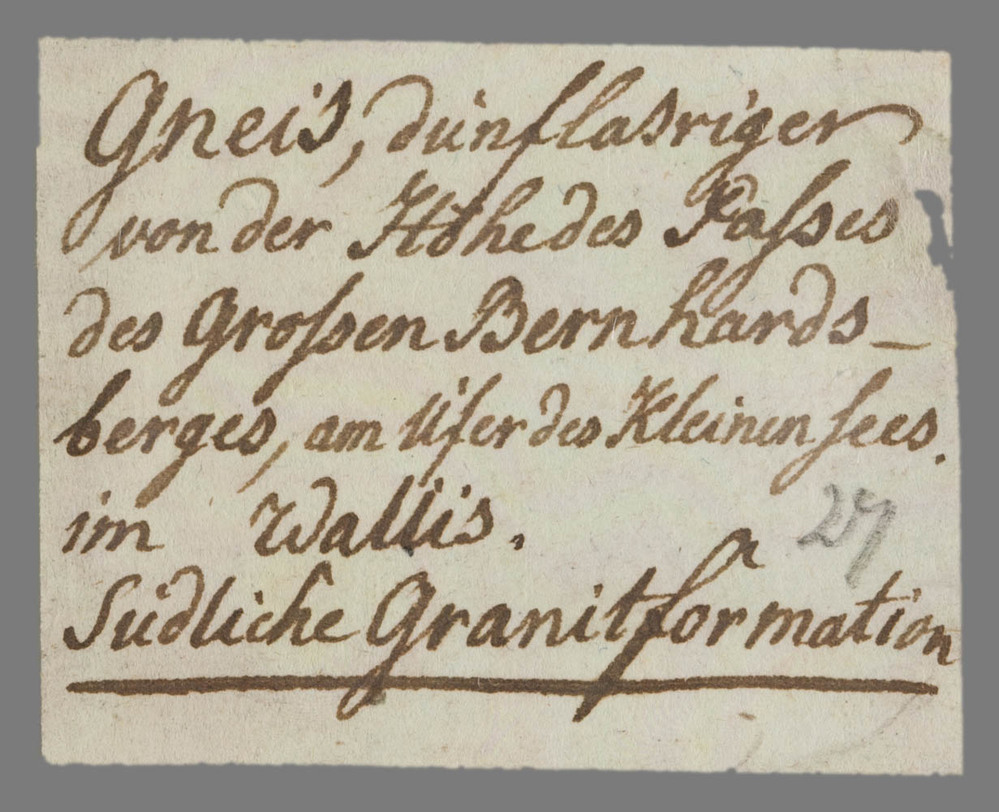 Gneis, dünflasriger
von der Höhe des Paſses
des Groſsen Bernhards-
berges, am Ufer des Kleinen sees.
im Wallis.
27
Südliche Granitformation